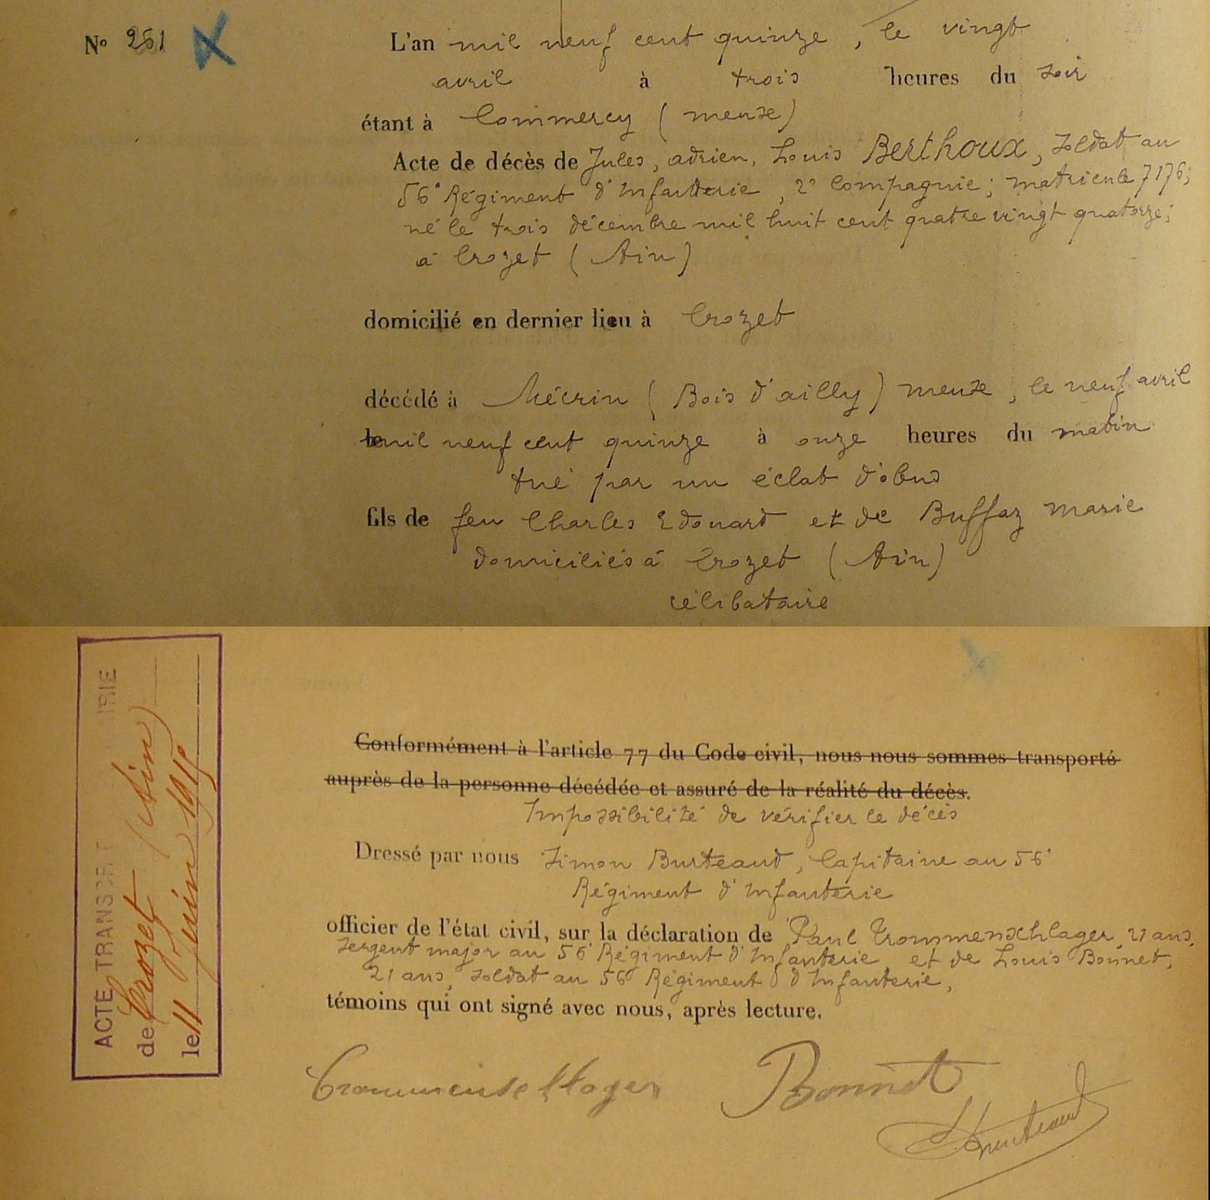 N° 251
L'an mil neuf cent quinze, le vingt
avril à trois heures du soir
étant à Commercy (meuse)
Acte de décès de Jules, adrien, Louis Berthoux, soldat au
56e Régiment d'Infanterie, 2e Compagnie; matricule 7176;
né le trois décembre mil huit cent quatre vingt quatorze;
à Crozet (Ain)
domicilié en dernier lieu à Crozet
décédé à Mécrin (Bois d'ailly) meuse, le neuf avril
le mil neuf cent quinze à onze heures du matin
tué par un éclat d'obus
fils de feu Charles Edouard et de Buffaz Marie
domiciliés à Crozet (Ain)
célibataire
ACTE TRANSCRIT MAIRIE
de Crozet (Ain)
le 11 Juin 1915
Conformément à l'article 77 du Code civil, nous nous sommes transporté
auprès de la personne décédée et assuré de la réalité du décès.
Impossibilité de vérifier le décès
Dressé par nous Simon Burteaud, Capitaine au 56e
Régiment d'Infanterie
officier de l'état civil, sur la déclaration de Paul Trommenschlager, 21 ans,
sergent major au 56e Régiment d'Infanterie et de Louis Bonnet,
21 ans, soldat au 56e Régiment d'Infanterie,
témoins qui ont signé avec nous, après lecture.
Trommenschlager Bonnet
SBurteaud